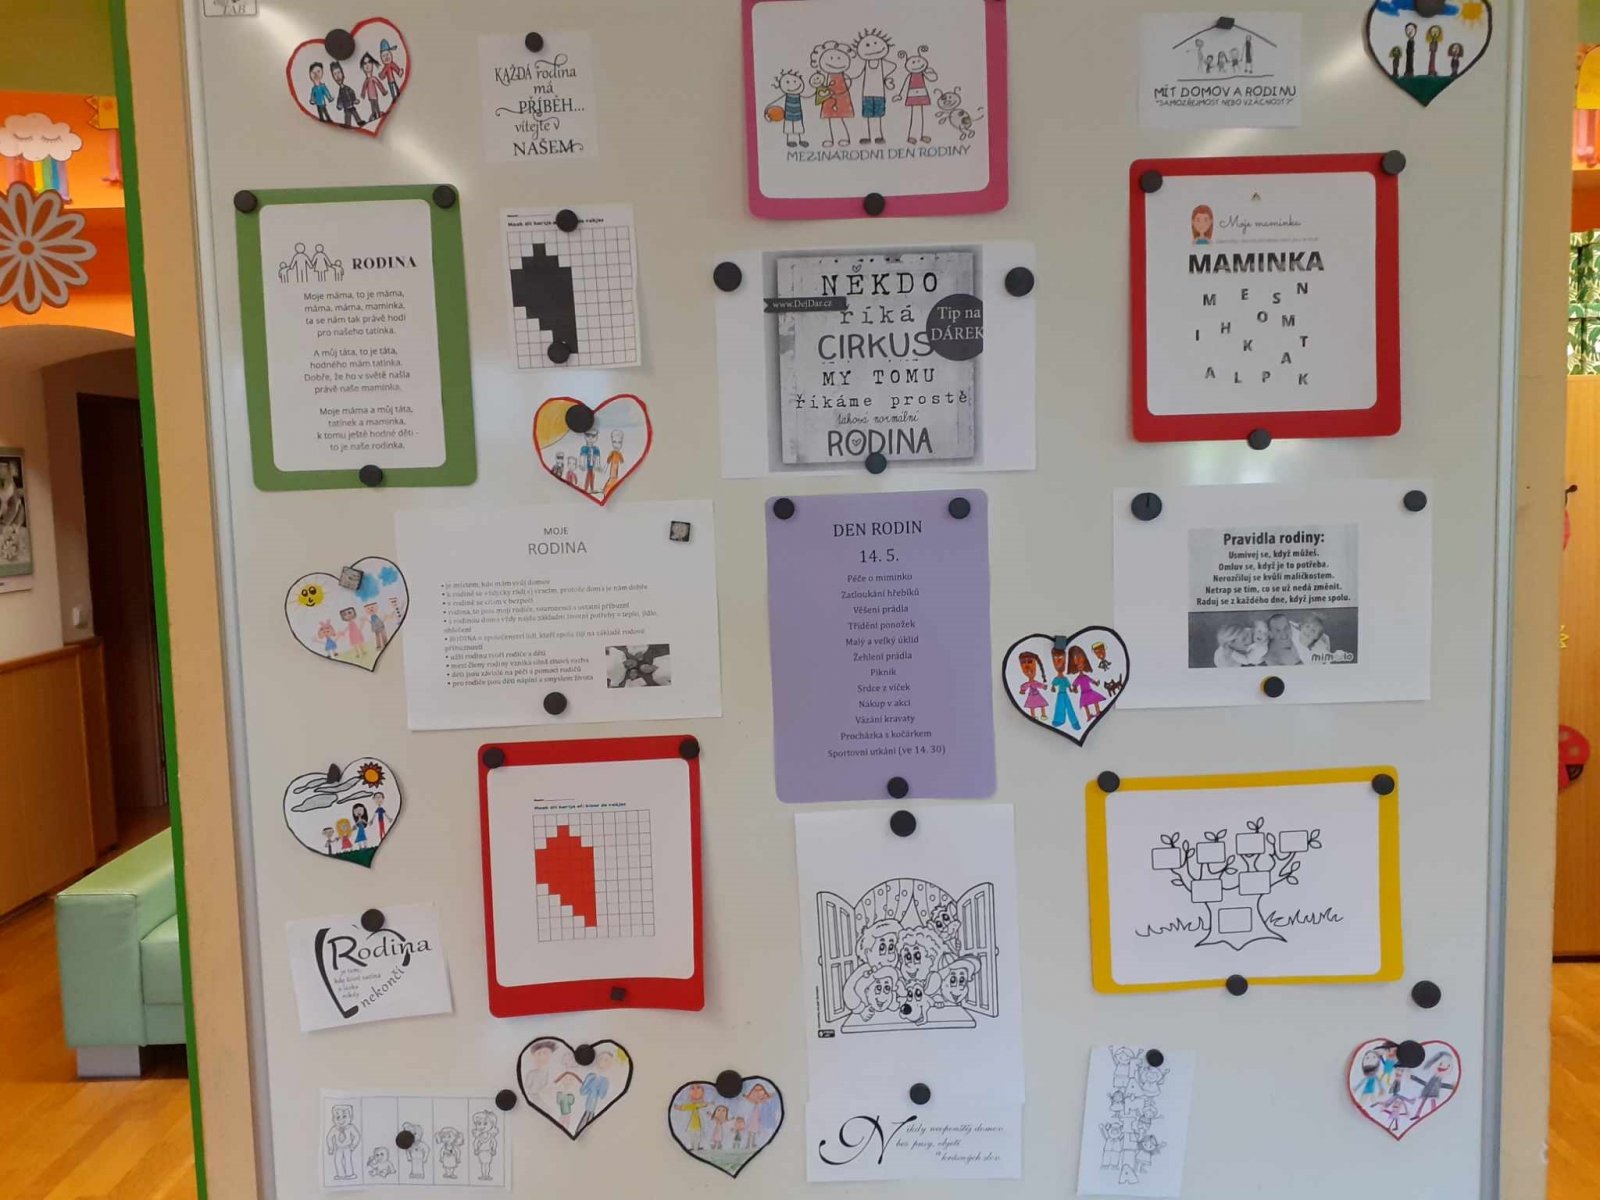 KAŽDÁ rodina
má
PŘÍBĚH...
vítejte v
NAŠEM
MEZINÁRODNÍ DEN RODINY
MÍT DOMOV A RODINU
"SAMOZŘEJMOST NEBO VZÁCNOST?"
RODINA
Moje máma, to je máma,
máma, máma, maminka,
ta se nám tak právě hodí
pro našeho tatínka.
A můj táta, to je táta,
hodného mám tatínka.
Dobře, že ho v světě našla
právě naše maminka.
Moje máma a můj táta,
tatínek a maminka,
k tomu ještě hodné děti -
to je naše rodinka.
NĚKDO
www.DejDar.cz
říká
Tip na
DÁREK
CIRKUS
MY TOMU
říkáme prostě
normální
RODINA
Moje maminka
MAMINKA
M E S N
I H O M
K A T
A L P K
MOJE
RODINA
je místem, kde mám svůj domov
v rodině se cítím v bezpečí
rodina, to jsou moji rodiče, sourozenci a ostatní příbuzní
s rodinou doma vždy najdu základní životní potřeby = teplo, jídlo,
oblečení
RODINA = společenství lidí, kteří spolu žijí na základě rodové
příbuznosti
užší rodinu tvoří rodiče a děti
mezi členy rodiny vzniká silná citová vazba
děti jsou závislé na péči a pomoci rodičů
pro rodiče jsou děti náplní a smyslem života
DEN RODIN
14. 5.
Péče o miminko
Zatloukání hřebíků
Věšení prádla
Třídění ponožek
Malý a velký úklid
Žehlení prádla
Piknik
Srdce z víček
Nákup v akci
Vázání kravaty
Procházka s kočárkem
Sportovní utkání (ve 14. 30)
Pravidla rodiny:
Usmívej se, když můžeš.
Omluv se, když je to potřeba.
Nerozčiluj se kvůli maličkostem.
Netrap se tím, co se už nedá změnit.
Raduj se z každého dne, když jsme spolu.
Rodina
je tam,
kde život začíná
a láska
nikdy
nekončí
Nikdy neopouštěj domov
bez pusy, objetí
a krásných slov.